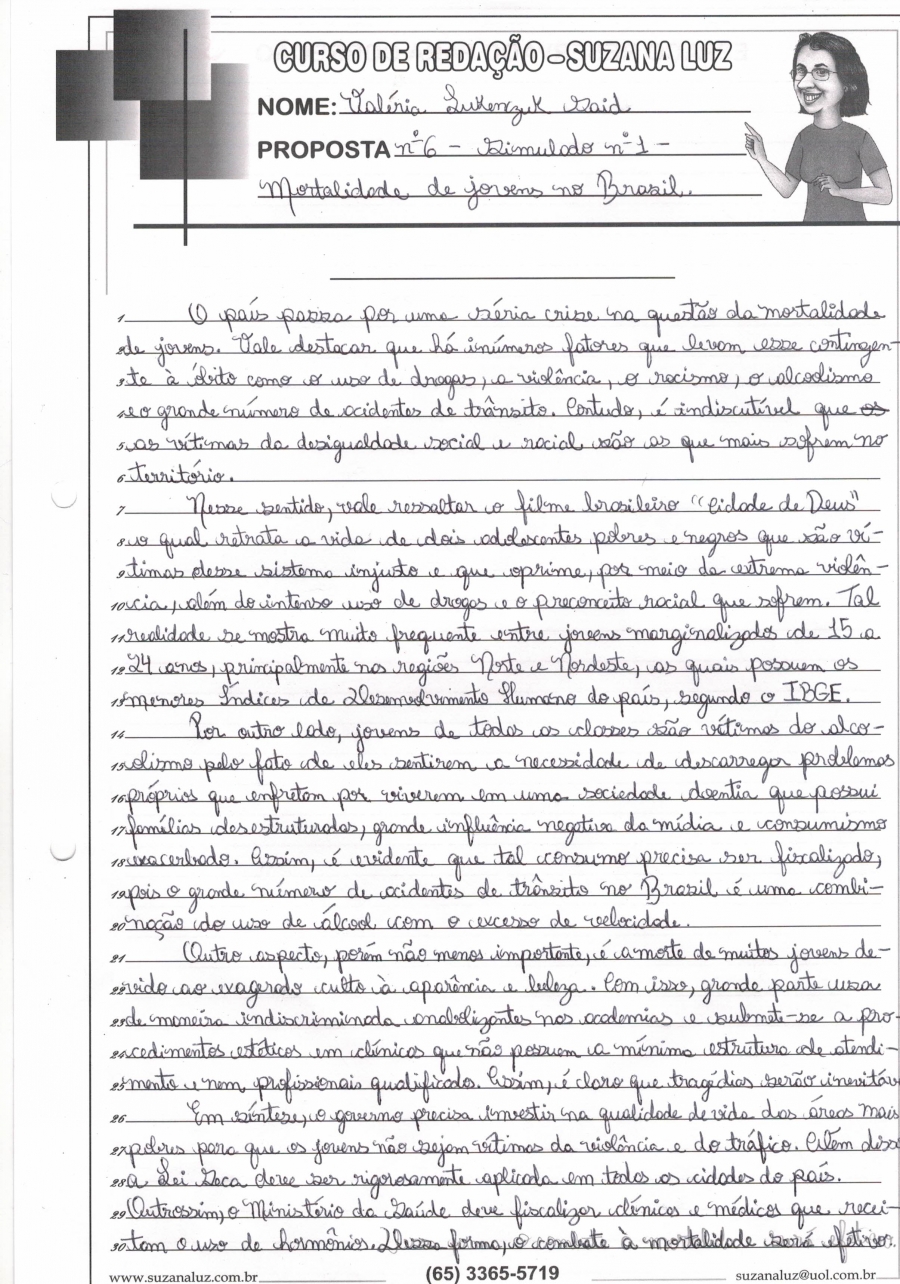 CURSO DE REDAÇÃO - SUZANA LUZ
NOME: Valéria Lukenczuk Said
PROPOSTA nº 6 - Simulado nº 1 -
Mortalidade de jovens no Brasil.
1 O país passa por uma séria crise na questão da mortalidade
2 de jovens. Vale destacar que há inúmeros fatores que levam esse contingen-
3 te à óbito como o uso de drogas, a violência, o racismo, o alcoolismo
4 e o grande número de acidentes de trânsito. Contudo, é indiscutível que os
5 as vítimas da desigualdade social e racial são as que mais sofrem no
6 território.
7 Nesse sentido, vale ressaltar o filme brasileiro "Cidade de Deus"
8 o qual retrata a vida de dois adolescentes pobres e negros que são ví-
9 timas desse sistema injusto e que oprime, por meio da extrema violên-
10 cia, além do intenso uso de drogas e o preconceito racial que sofrem. Tal
11 realidade se mostra muito frequente entre jovens marginalizados de 15 a
12 24 anos, principalmente nas regiões Norte e Nordeste, as quais possuem os
13 menores Índices de Desenvolvimento Humano do país, segundo o IBGE.
14 Por outro lado, jovens de todas as classes são vítimas do alco-
15 olismo pelo fato de eles sentirem a necessidade de descarregar problemas
16 próprios que enfretam por viverem em uma sociedade doentia que possui
17 famílias desestruturadas, grande influência negativa da mídia e consumismo
18 exacerbado. Assim, é evidente que tal consumo precisa ser fiscalizado,
19 pois o grande número de acidentes de trânsito no Brasil é uma combi-
20 nação do uso de álcool com o excesso de velocidade.
21 Outro aspecto, porém não menos importante, é a morte de muitos jovens de-
22 vido ao exagerado culto à aparência e beleza. Com isso, grande parte usa
23 de maneira indiscriminada anabolizantes nas academias e submete-se a pro-
24 cedimentos estéticos em clínicas que não possuem a mínima estrutura de atendi-
25 mento e nem profissionais qualificados. Assim, é claro que tragédias serão inevitáv
26 Em síntese, o governo precisa investir na qualidade de vida das áreas mais
27 pobres para que os jovens não sejam vítimas da violência e do tráfico. Além diss
28 a Lei Seca deve ser rigorosamente aplicada em todas as cidades do país.
29 Outrossim, o Ministério da Saúde deve fiscalizar clínicas e médicos que recei-
30 tam o uso de hormônios. Dessa forma, o combate à mortalidade será efetivo.
www.suzanaluz.com.br (65) 3365-5719 suzanaluz@uol.com.br